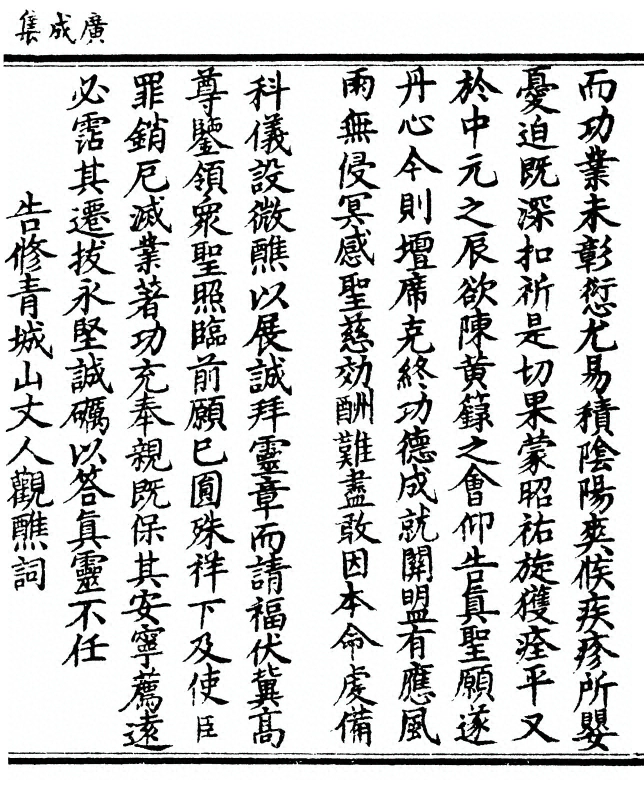 廣成集
而功業未彰愆尤易積陰陽爽候疾疹所嬰
憂迫既深扣祈是切果蒙昭祐旋獲痊平又
於中元之辰欲陳黄籙之會仰告真聖願遂
丹心今則壇席克終功德成就關盟有應風
雨無侵冥感聖慈効酬難盡敢因本命處備
科儀設微醮以展誠拜靈章而請福伏冀高
尊鑒領衆聖照臨前願已圎殊祥下及使臣
罪銷厄滅業著功充奉親既保其安寧薦遠
必霑其遷拔永堅誠礪以答真靈不任
告修青城山丈人觀醮詞